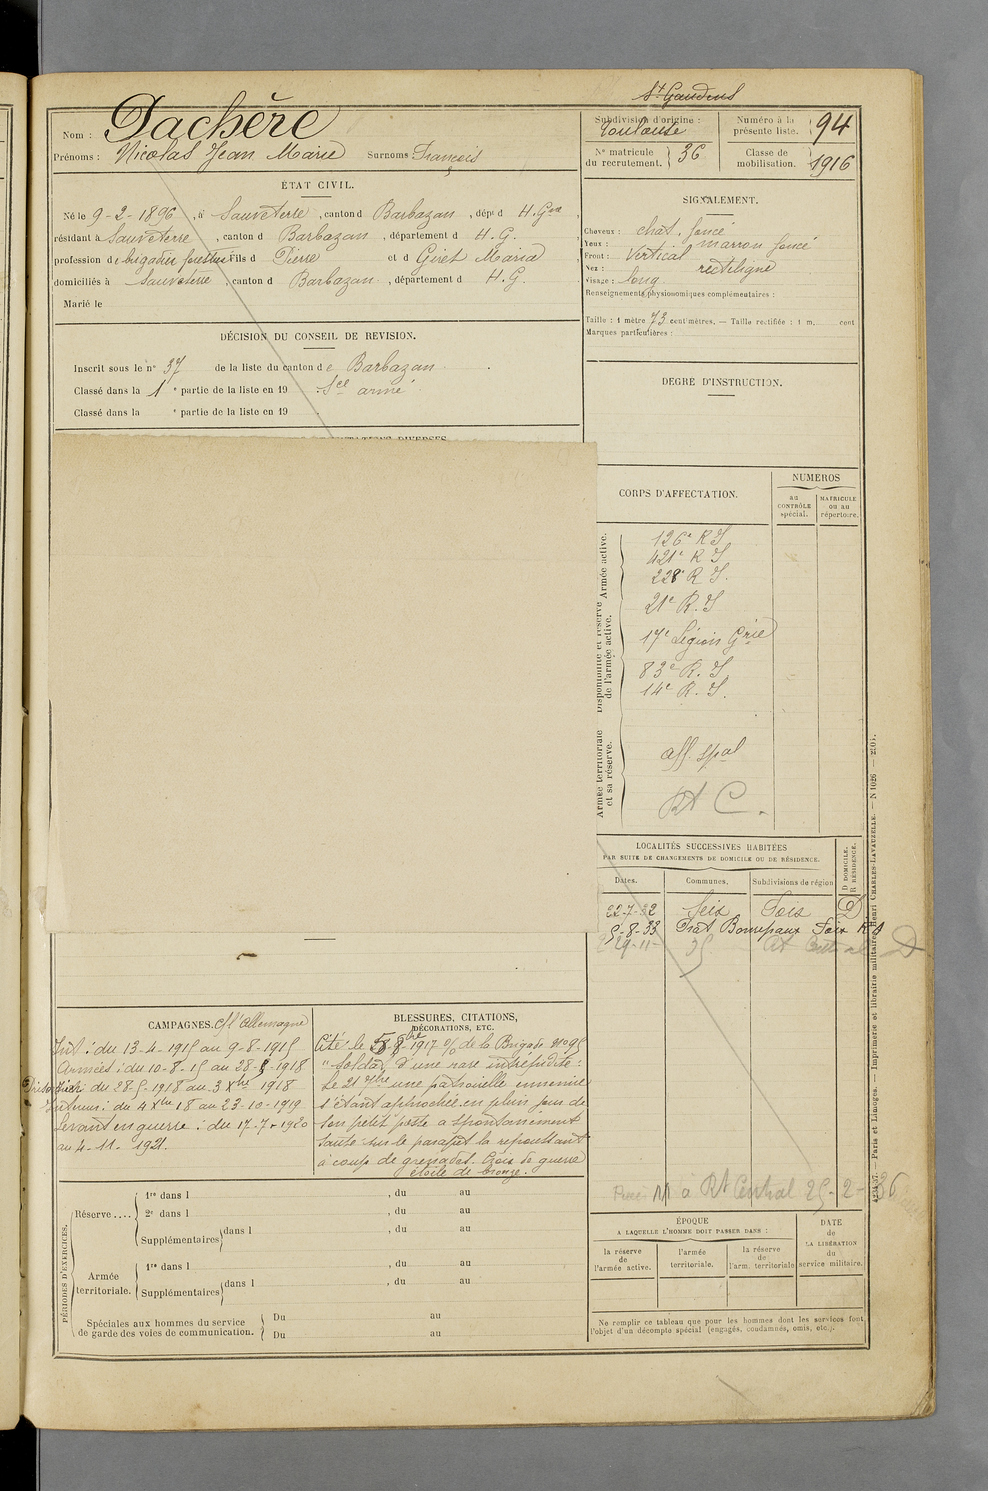 St Gaudens
Nom : Dachère
Prénoms : Nicolas Jean Marie Surnoms François
Subdivision d'origine :
Toulouse
Numéro à la présente liste. 94
N° matricule du recrutement. 36
Classe de mobilisation. 1916
ÉTAT CIVIL.
Né le 9-2-1896, à Sauveterre, canton d Barbazan, dép¹ d H. Gne
résidant à Sauveterre, canton d Barbazan, département d H. G.
profession de brigadier forestier Fils d Pierre et d Giret Maria
domiciliés à Sauveterre, canton d Barbazan, département d H. G.
Marié le
SIGNALEMENT.
Cheveux : chat. foncé
Yeux : marron foncé
Front : Vertical
Nez : rectiligne
Visage : long
Renseignements physionomiques complémentaires :
Taille : 1 mètre 73 centimètres. — Taille rectifiée : 1 m. cent
Marques particulières :
DÉCISION DU CONSEIL DE REVISION.
Inscrit sous le n° 37 de la liste du canton de Barbazan
Classé dans la 1 e partie de la liste en 19 Sce armé
Classé dans la e partie de la liste en 19
DEGRÉ D'INSTRUCTION.
CORPS D'AFFECTATION.
NUMÉROS
au CONTRÔLE spécial.
MATRICULE ou au répertoire.
Armée active.
Disponibilité et réserve de l'armée active.
Armée territoriale et sa réserve.
126e R I
421e R I
228e R I.
21e R. I
17e Légion Grie
83e R. I
14e R. I.
aff. spal
Rt C.
LOCALITÉS SUCCESSIVES HABITÉES
PAR SUITE DE CHANGEMENTS DE DOMICILE OU DE RÉSIDENCE.
Dates. Communes. Subdivisions de région D DOMICILE. R RÉSIDENCE.
22-7-32 Seix Foix D
5-8-33 Prat Bonrepaux Foix
29-11-35 D
à Rt Central 25-2-36
CAMPAGNES. c/ l'Allemagne
Int : du 13-4-1915 au 9-8-1915
Armées : du 10-8-15 au 28-5-1918
Prisonnier du 28 5 1918 au 3 Xbre 1918
Intérieur : du 4 Xbre 18 au 23-10-1919
Levant en guerre : du 17-7-1920
au 4-11-1921.
BLESSURES, CITATIONS,
DÉCORATIONS, ETC.
Cité le 8bre 1917 o/ de la Brigade n° 95
"Soldat d'une rare intrépidité :
Le 21 7bre une patrouille ennemie
s'étant approchée en plein jour de
son petit poste a spontanément
sauté sur le parapet la repoussant
à coups de grenades. Croix de guerre
étoile de bronze.
PÉRIODES D'EXERCICES.
Réserve....
1re dans l , du au
2e dans l , du au
Supplémentaires dans l , du au
Armée territoriale.
1re dans l , du au
Supplémentaires dans l , du au
Spéciales aux hommes du service de garde des voies de communication.
Du au
Du au
ÉPOQUE
A LAQUELLE L'HOMME DOIT PASSER DANS :
la réserve de l'armée active.
l'armée territoriale.
la réserve de l'arm. territoriale
DATE de LA LIBÉRATION du service militaire.
Ne remplir ce tableau que pour les hommes dont les services font
l'objet d'un décompte spécial (engagés, condamnés, omis, etc.).
Paris et Limoges. — Imprimerie et librairie militaires Henri CHARLES-LAVAUZELLE.